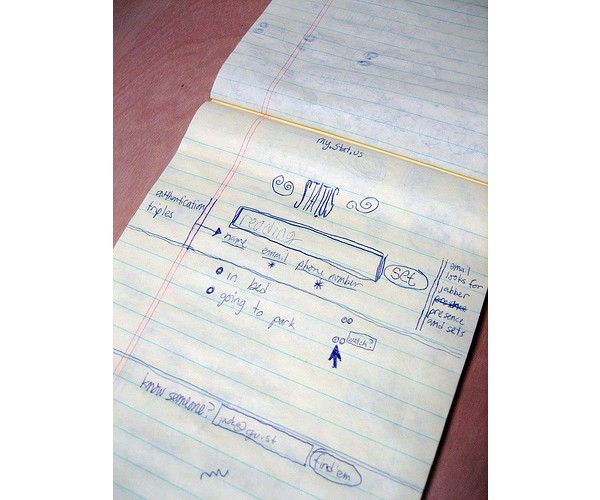 my.stat.us
STATUS
authentication
triples
reading
set
name email phone number
* *
in bed
going to park
watch?
email
looks for
jabber
presence
presence
and sets
know someone?
jack@gu.st
find 'em